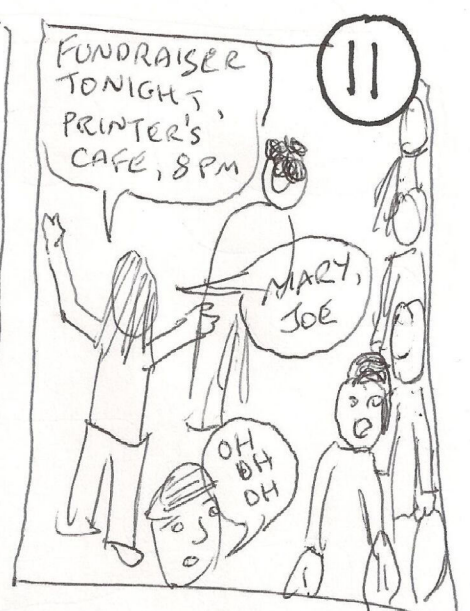 11
FUNDRAISER
TONIGHT,
PRINTER'S
CAFE, 8 PM
MARY,
JOE
OH
OH
OH